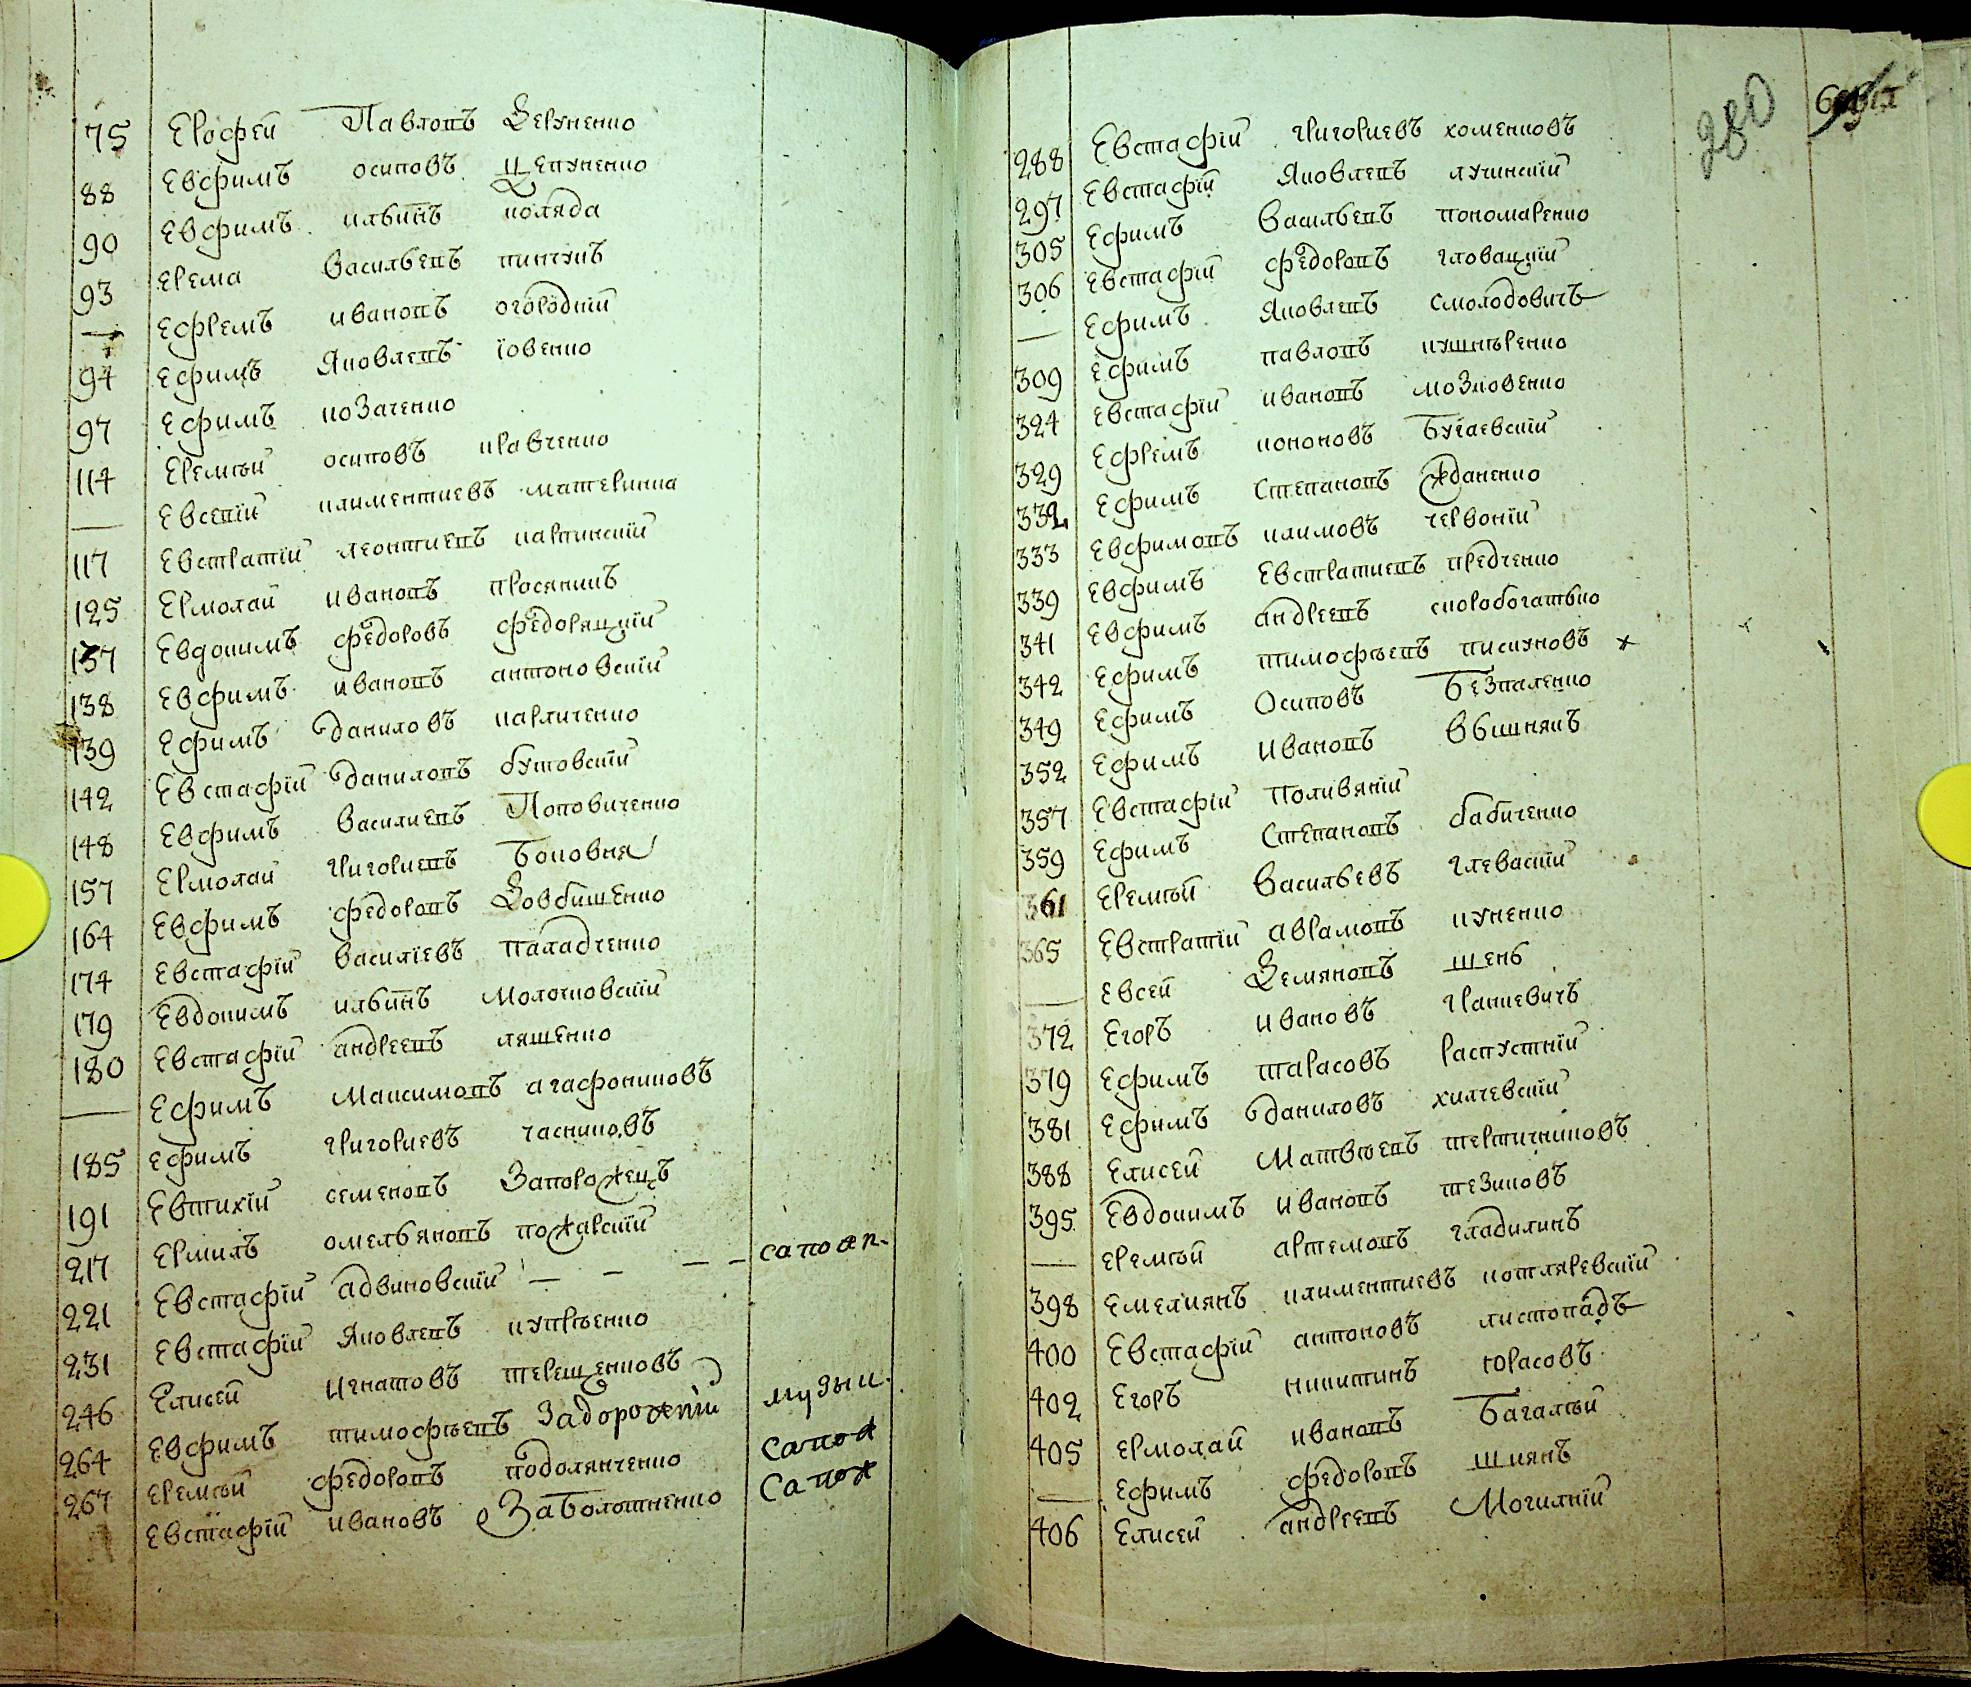 75 Ерофей Павловъ Зерученко
88 Евфимъ осиповъ цепуненко
90 Евфимъ ильинъ коляда
93 Ерема Васильевъ пинчукъ
— Ефремъ ивановъ огородній
94 Ефимъ Яковлевъ іовенко
97 Ефимъ козаченко
114 Еремѣй осиповъ кравченко
— Евсевій климентиевъ материнка
117 Евстратій леонтиевъ карпинскій
125 Ермолай ивановъ просяникъ
137 Евдокимъ федоровъ федоряцкій
138 Евфимъ ивановъ антоновскій
139 Ефимъ даниловъ карпиченко
142 Евстафій даниловъ бутовскій
148 Евфимъ Василиевъ Поповиченко
157 Ермолай григориевъ Боковня
164 Евфимъ федоровъ Довбишенко
174 Евстафій василіевъ паладченко
179 Евдокимъ ильинъ Молочковскій
180 Евстафій андреевъ ляшенко
— Ефимъ Максимовъ агафониковъ
185 Ефимъ григориевъ часниковъ
191 Евтихій семеновъ Запорожецъ
217 Ермилъ омельяновъ пожарскій
221 Евстафій адвиновскій — — — — сапожн.
231 Евстафій Яковлевъ купрѣенко
246 Елисей игнатовъ терещенковъ
264 Евфимъ тимофѣевъ Задорожній музык.
267 Еремѣй федоровъ подолянченко сапож
Евстафій ивановъ Заболотненко сапож
280
288 Евстафій григориевъ хоменковъ
297 Евстафій Яковлевъ лучинскій
305 Ефимъ Васильевъ пономаренко
306 Евстафій федоровъ гловацкій
— Ефимъ Яковлевъ смолодовичъ
309 Ефимъ павловъ кушнѣренко
324 Евстафій ивановъ мозковенко
329 Ефремъ кононовъ Бугаевскій
332 Ефимъ Степановъ жданенко
333 Евфимовъ климовъ червоній
339 Евфимъ Евстратиевъ предченко
341 Евфимъ андреевъ скоробогатько
342 Ефимъ тимофѣевъ пискуновъ ×
349 Ефимъ Осиповъ Безпаленко
352 Ефимъ Ивановъ Вбишнякъ
357 Евстафій Поливяній
359 Ефимъ Степановъ бабиченко
361 Еремѣй Васильевъ глеваскій
365 Евстратій аврамовъ куненко
— Евсей Земяновъ шень
372 Егоръ ивановъ гранкевичъ
379 Ефимъ тарасовъ распустній
381 Ефимъ даниловъ хилчевскій
388 Елисей Матвѣевъ терпичниковъ
395 Евдокимъ ивановъ тезиковъ
— еремѣй артемовъ гладилинъ
398 Емелиянъ климентиевъ котляревскій
400 Евстафій антоновъ листопадъ
402 Егоръ никитинъ юрасовъ
405 ермолай ивановъ Багалѣй
— Ефимъ федоровъ шкянъ
406 Елисей андреевъ Могилній